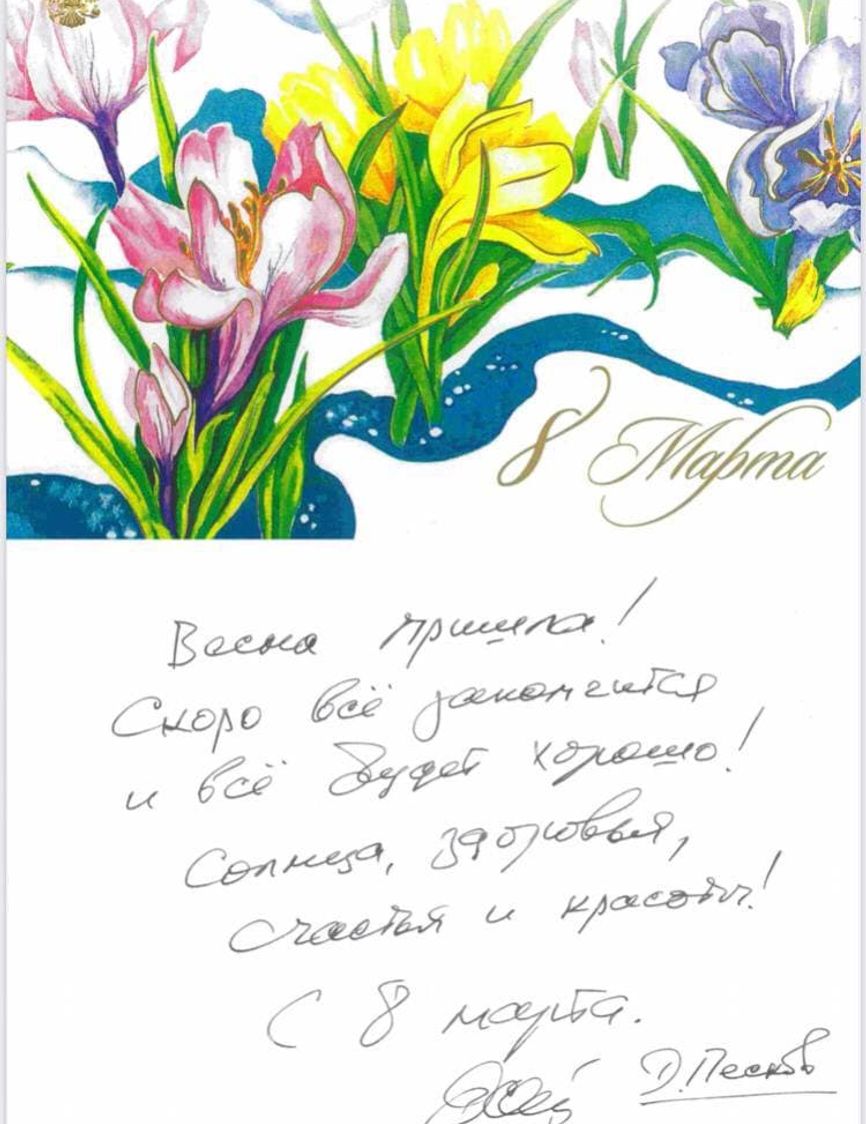 8 Марта
Весна пришла!
Скоро всё закончится
и всё будет хорошо!
Солнца, здоровья,
счастья и красоты!
С 8 марта.
Д. Песков